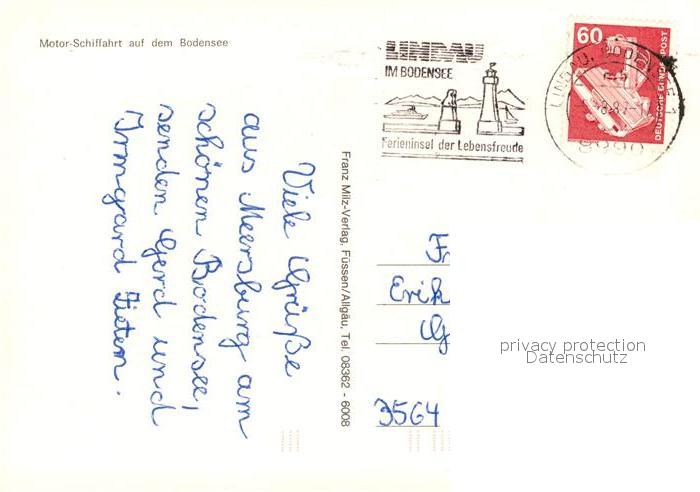 Motor-Schiffahrt auf dem Bodensee
Viele Grüße
aus Meersburg am
schönen Bodensee,
senden Gerd und
Irmgard Zietem.
Franz Milz-Verlag, Füssen/Allgäu, Tel. 08362 - 6008
LINDAU
IM BODENSEE
Ferieninsel der Lebensfreude
LINDAU, BODENSEE
60
DEUTSCHE BUNDESPOST
Fr
Erik
G
3564
privacy protection
Datenschutz